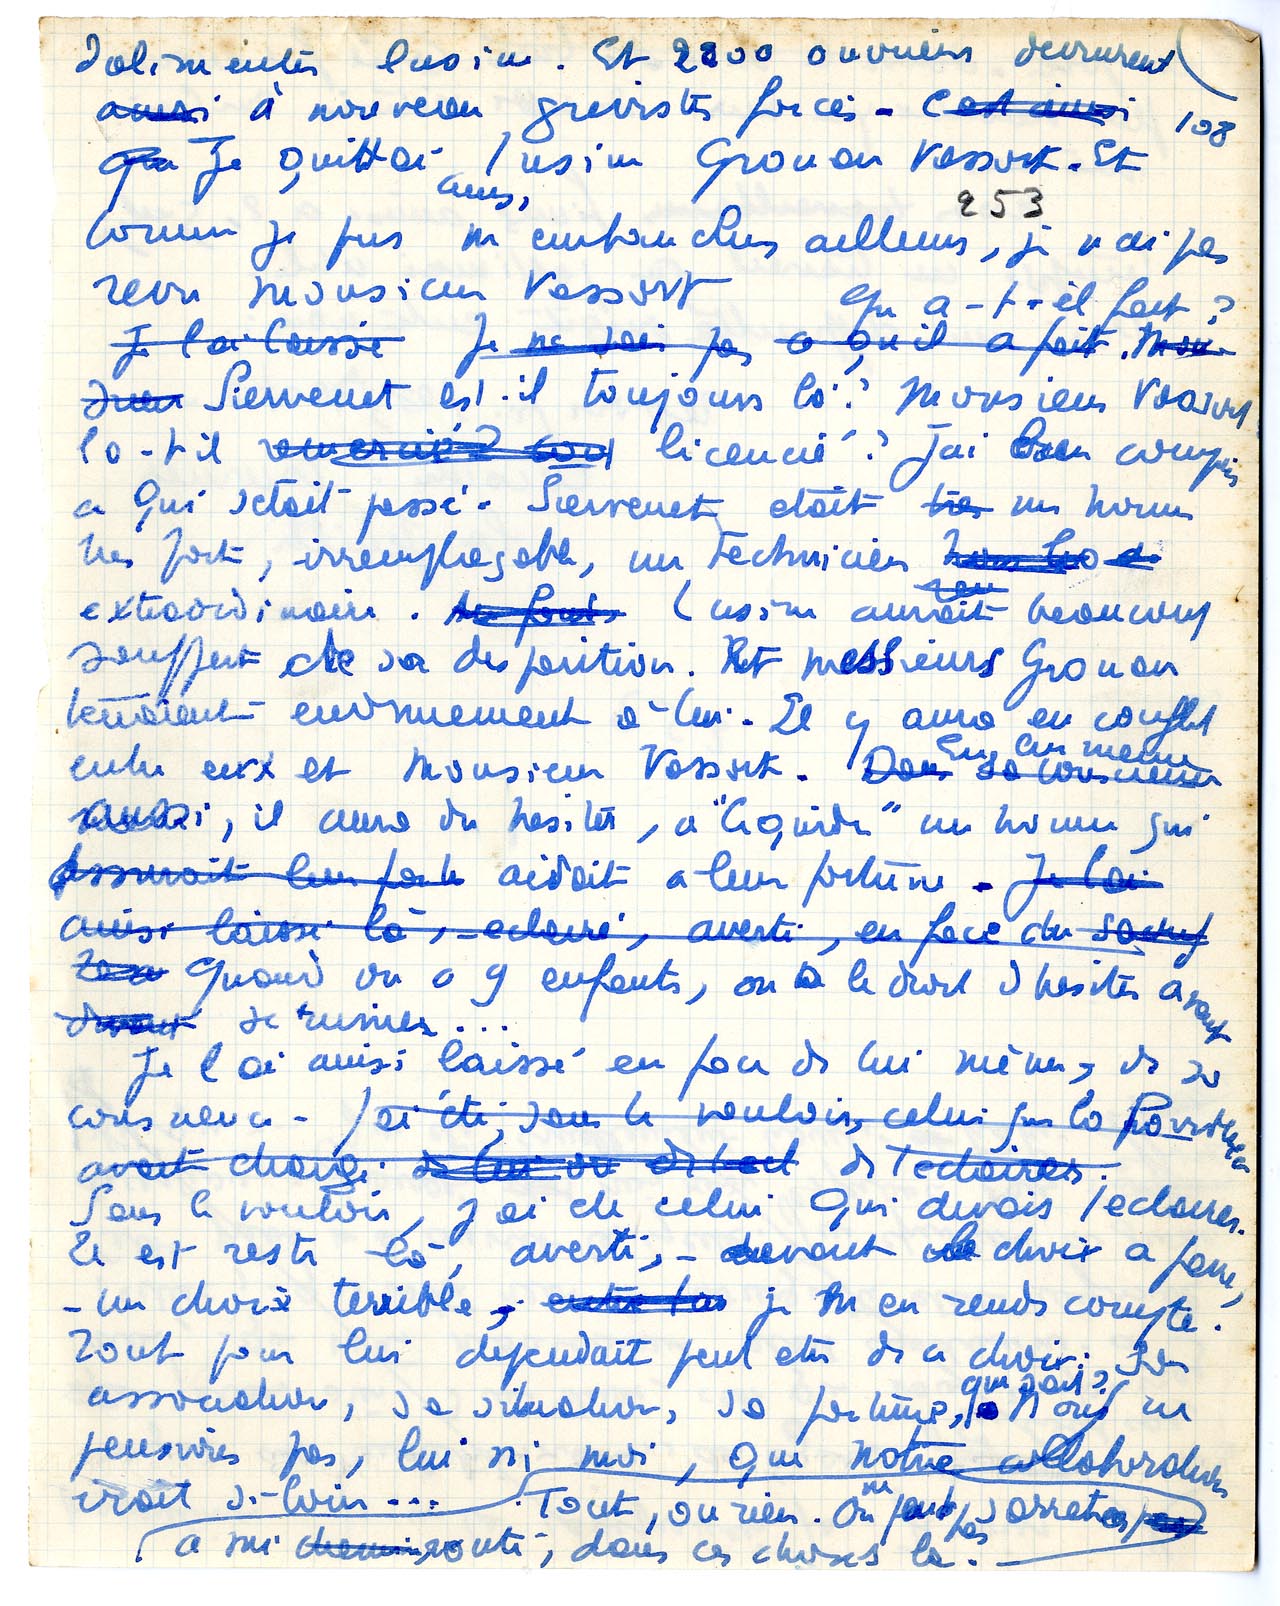 d'alimenter l'usine. Et 2200 ouvriers devinrent
108
ainsi à nouveau grévistes forcés. C'est ainsi
que Je quittai l'usine Gronon Vassort. Et
253
comme je pus m'embaucher ailleurs, je n'ai pas
revu Monsieur Vassort Qu'a-t-il fait ?
Je l'ai laissé Je ne sais pas ce qu'il a fait.
Siervenet est-il toujours là ? Monsieur Vassort
l'a-t-il remercié ? licencié ? J'ai bien compris
ce qui s'était passé. Siervenet était très un homme
très fort, irremplaçable, un technicien
extraordinaire. L'usine aurait beaucoup
souffert de sa disparition. Et messieurs Gronon
tenaient énormément à lui. Il y aura eu conflit
entre eux et Monsieur Vassort. En lui même
Dans sa conscience
aussi, il aura dû hésiter, à "liquider" un homme qui
assurait leur aidait à leur fortune. Je l'ai
ainsi laissé là, éclairé, averti, en face du
Quand on a 9 enfants, on a le droit d'hésiter avant
de ruiner...
Je l'ai ainsi laissé en face de lui même, de sa
conscience. J'ai été, sans le vouloir, celui que la Providence
avait chargé de l'éclairer.
Sans le vouloir, j'ai été celui qui devais l'éclairer.
Il est resté là, averti, - devant le choix à faire,
- un choix terrible, je m'en rends compte.
Tout pour lui dépendait peut être de ce choix : son
qui sait ?
association, sa situation, sa fortune, Nous ne
pensions pas, lui ni moi, que notre collaboration
irait si loin... Tout, ou rien. On ne peut pas s'arrêter pas
à mi chemin route, dans ces choses là.